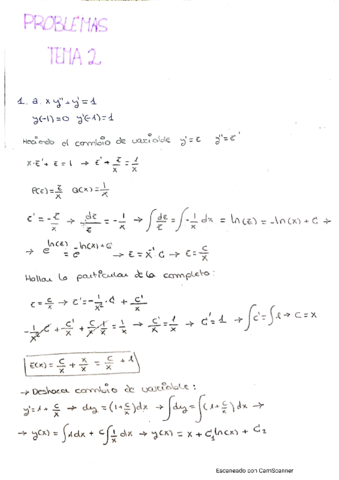 PROBLEMAS
TEMA 2
1. a. x y'' + y' = 1
y(-1) = 0 y'(-1) = 1
Haciendo el cambio de variable y' = z y'' = z'
x·z' + z = 1 → z' + z/x = 1/x
P(z) = z/x Q(x) = 1/x
z' = -z/x → dz/z = -1/x → ∫dz/z = ∫-1/x dx = ln(z) = -ln(x) + C →
→ e^ln(z) = e^-ln(x)+C → z = x⁻¹ C → z = C/x
Hallar la particular de la completa:
z = C/x → z' = -1/x² · C + C'/x
-1/x² C + C'/x + C·1/x² = 1/x → C'/x = 1/x → C' = 1 → ∫C' = ∫1 → C = x
z(x) = C/x + x/x = C/x + 1
→ Deshacer cambio de variable:
y' = 1 + C/x → dy = (1 + C/x)dx → ∫dy = ∫(1 + C/x)dx →
→ y(x) = ∫1dx + C∫1/x dx → y(x) = x + C₁ ln(x) + C₂
Escaneado con CamScanner